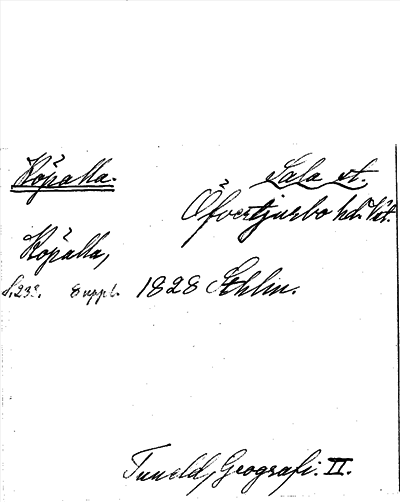 Köpalla. Sala st.
Öfvertjurbo hd. Vst.
Köpalla,
S. 23. Suppl. 1828 Sthlm.
Tuneld, Geografi. II.